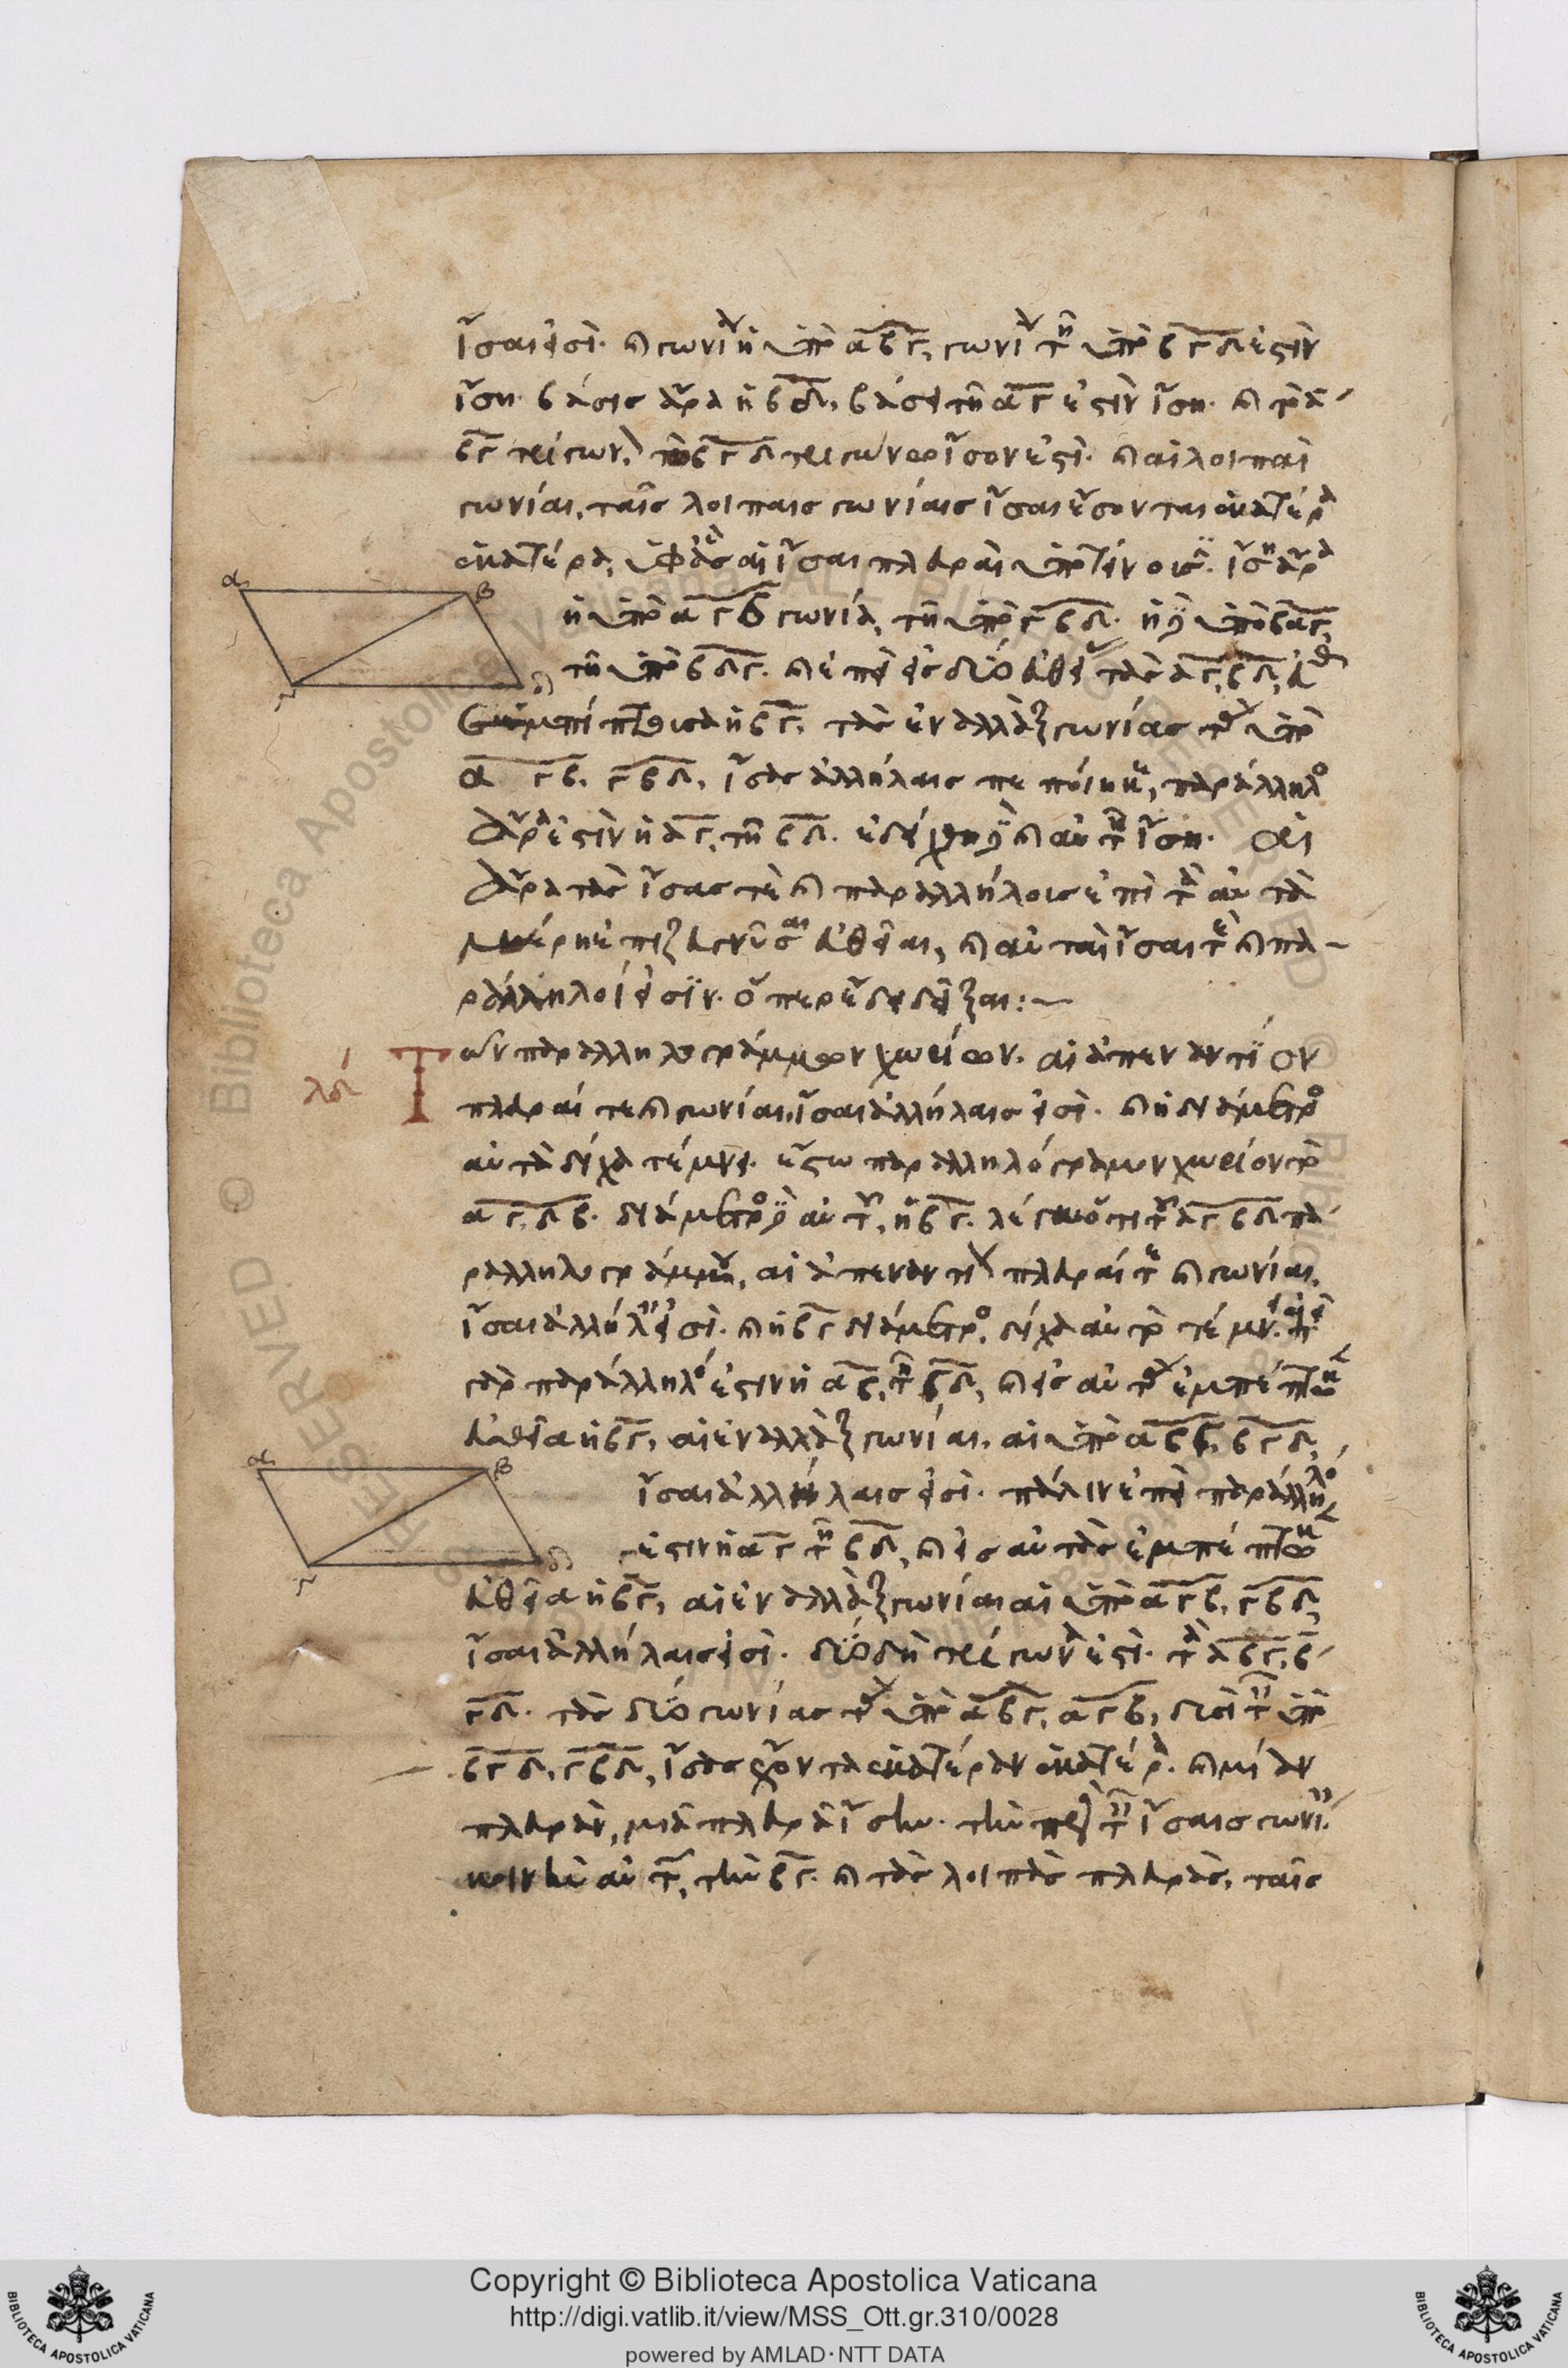 ἴσαι εἰσί. καὶ γωνία ἡ ὑπὸ αβγ, γωνίᾳ τῇ ὑπὸ βγδ ἐστὶν
ἴση. βάσις ἄρα ἡ βδ, βάσει τῇ αγ ἐστὶν ἴση. καὶ τὸ α
βγ τρίγωνον τῷ βγδ τριγώνῳ ἴσον ἐστί. καὶ αἱ λοιπαὶ
γωνίαι, ταῖς λοιπαῖς γωνίαις ἴσαι ἔσονται ἑκατέρα
ἑκατέρα, ὑφ' ἃς αἱ ἴσαι πλευραὶ ὑποτείνουσιν. ἴση ἄρα
α β
ἡ ὑπὸ αγβ γωνία, τῇ ὑπὸ γβδ. ἡ δὲ ὑπὸ βαγ,
τῇ ὑπὸ βδγ. καὶ ἐπεὶ εἰς δύο εὐθείας τὰς αγ, βδ, εὐθεῖα
γ δ
ἐμπίπτουσα ἡ βγ, τὰς ἐναλλὰξ γωνίας τὰς ὑπὸ
αγβ, γβδ, ἴσας ἀλλήλαις πεποίηκε, παράλληλος
ἄρα ἐστὶν ἡ αγ, τῇ βδ. ἐδείχθη δὲ καὶ αὐτῇ ἴση. αἱ
ἄρα τὰς ἴσας τε καὶ παραλλήλους ἐπὶ τὰ αὐτὰ
μέρη ἐπιζευγνῦσαι εὐθεῖαι, καὶ αὐταὶ ἴσαι τε καὶ πα
ράλληλοί εἰσιν. ὅπερ ἔδει δεῖξαι:
λδ Τῶν παραλληλογράμμων χωρίων. αἱ ἀπεναντίον
πλευραί τε καὶ γωνίαι, ἴσαι ἀλλήλαις εἰσί. καὶ ἡ διάμετρος
αὐτὰ δίχα τέμνει. ἔστω παραλληλόγραμμον χωρίον τὸ
αγδβ. διάμετρος δὲ αὐτοῦ, ἡ βγ. λέγω ὅτι τοῦ αγβδ πα
ραλληλογράμμου, αἱ ἀπεναντίον πλευραί τε καὶ γωνίαι,
ἴσαι ἀλλήλαις εἰσί. καὶ ἡ βγ διάμετρος, δίχα αὐτὸ τέμνει. ἐπεὶ
γὰρ παράλληλός ἐστιν ἡ αβ, τῇ γδ, καὶ εἰς αὐτὰς ἐμπέπτωκεν
εὐθεῖα ἡ βγ, αἱ ἐναλλὰξ γωνίαι, αἱ ὑπὸ αβγ, βγδ,
α β
ἴσαι ἀλλήλαις εἰσί. πάλιν ἐπεὶ παράλληλός
ἐστιν ἡ αγ τῇ βδ, καὶ εἰς αὐτὰς ἐμπέπτωκεν
γ δ
εὐθεῖα ἡ βγ, αἱ ἐναλλὰξ γωνίαι αἱ ὑπὸ αγβ, γβδ,
ἴσαι ἀλλήλαις εἰσί. δύο δὴ τρίγωνά ἐστι. τὰ αβγ, β
γδ. τὰς δύο γωνίας τὰς ὑπὸ αβγ, αγβ, δυσὶ ταῖς ὑπὸ
βγδ, γβδ, ἴσας ἔχοντα ἑκατέραν ἑκατέρᾳ. καὶ μίαν
πλευρὰν, μιᾷ πλευρᾷ ἴσην. τὴν πρὸς ταῖς ἴσαις γωνίαις
κοινὴν αὐτῶν, τὴν βγ. καὶ τὰς λοιπὰς πλευρὰς, ταῖς
Copyright © Biblioteca Apostolica Vaticana
http://digi.vatlib.it/view/MSS_Ott.gr.310/0028
powered by AMLAD · NTT DATA
BIBLIOTECA APOSTOLICA VATICANA
BIBLIOTECA APOSTOLICA VATICANA